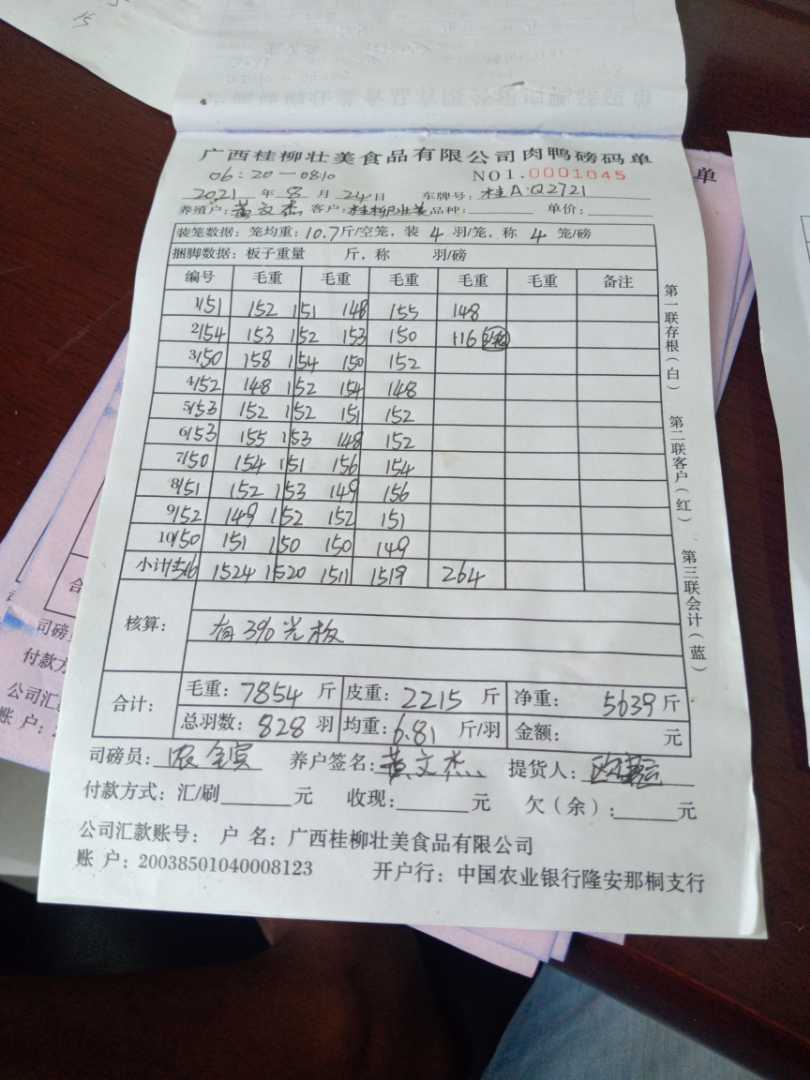 广西桂柳壮美食品有限公司肉鸭磅码单
06:20—0810 NO1.0001045
2021 年 8 月 24 日 车牌号: 桂A·Q2721
养殖户: 黄文杰 客户: 桂柳壮美 品种: 单价:
装笼数据: 笼均重: 10.7 斤/空笼, 装 4 羽/笼, 称 4 笼/磅
捆脚数据: 板子重量 斤, 称 羽/磅
编号 毛重 毛重 毛重 毛重 毛重 备注
1 151 152 151 148 155 148
2 154 153 152 153 150 116
3 150 158 154 150 152
4 152 148 152 154 148
5 153 152 152 151 152
6 153 155 153 148 152
7 150 154 151 156 154
8 151 152 153 149 156
9 152 149 152 152 151
10 150 151 150 150 149
小计: 1516 1524 1520 1511 1519 264
核算: 有3%光板
合计: 毛重: 7854 斤 皮重: 2215 斤 净重: 5639 斤
总羽数: 828 羽 均重: 6.81 斤/羽 金额: 元
司磅员: 养户签名: 黄文杰 提货人:
付款方式: 汇/刷 元 收现: 元 欠(余): 元
公司汇款账号: 户 名: 广西桂柳壮美食品有限公司
账 户: 20038501040008123 开户行: 中国农业银行隆安那桐支行
第一联存根(白)
第二联客户(红)
第三联会计(蓝)
单
司磅
付款方
公司汇
账 户:
单
15